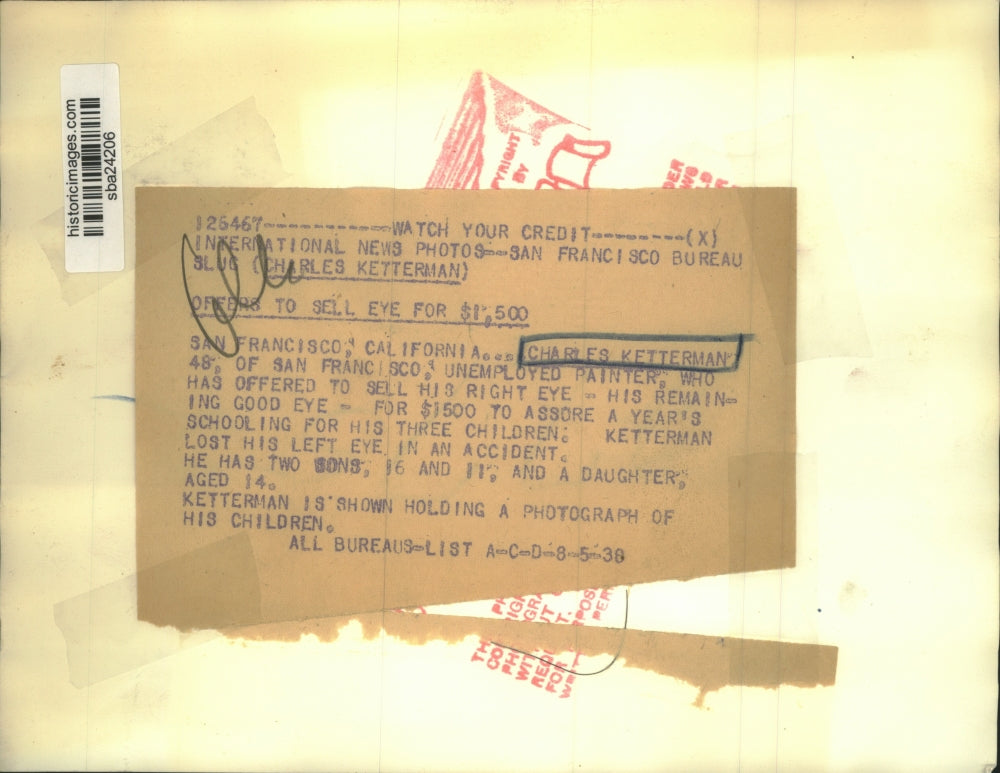 historicimages.com
sba24206
PYRIGHT
BY
126467------------WATCH YOUR CREDIT---------(X)
INTERNATIONAL NEWS PHOTOS--SAN FRANCISCO BUREAU
SLUG (CHARLES KETTERMAN)
OFFERS TO SELL EYE FOR $1,500
SAN FRANCISCO, CALIFORNIA.... CHARLES KETTERMAN
48, OF SAN FRANCISCO, UNEMPLOYED PAINTER, WHO
HAS OFFERED TO SELL HIS RIGHT EYE - HIS REMAIN-
ING GOOD EYE - FOR $1500 TO ASSURE A YEAR'S
SCHOOLING FOR HIS THREE CHILDREN. KETTERMAN
LOST HIS LEFT EYE IN AN ACCIDENT.
HE HAS TWO SONS, 16 AND 11, AND A DAUGHTER,
AGED 14.
KETTERMAN IS SHOWN HOLDING A PHOTOGRAPH OF
HIS CHILDREN.
ALL BUREAUS-LIST A-C-D-8-5-38